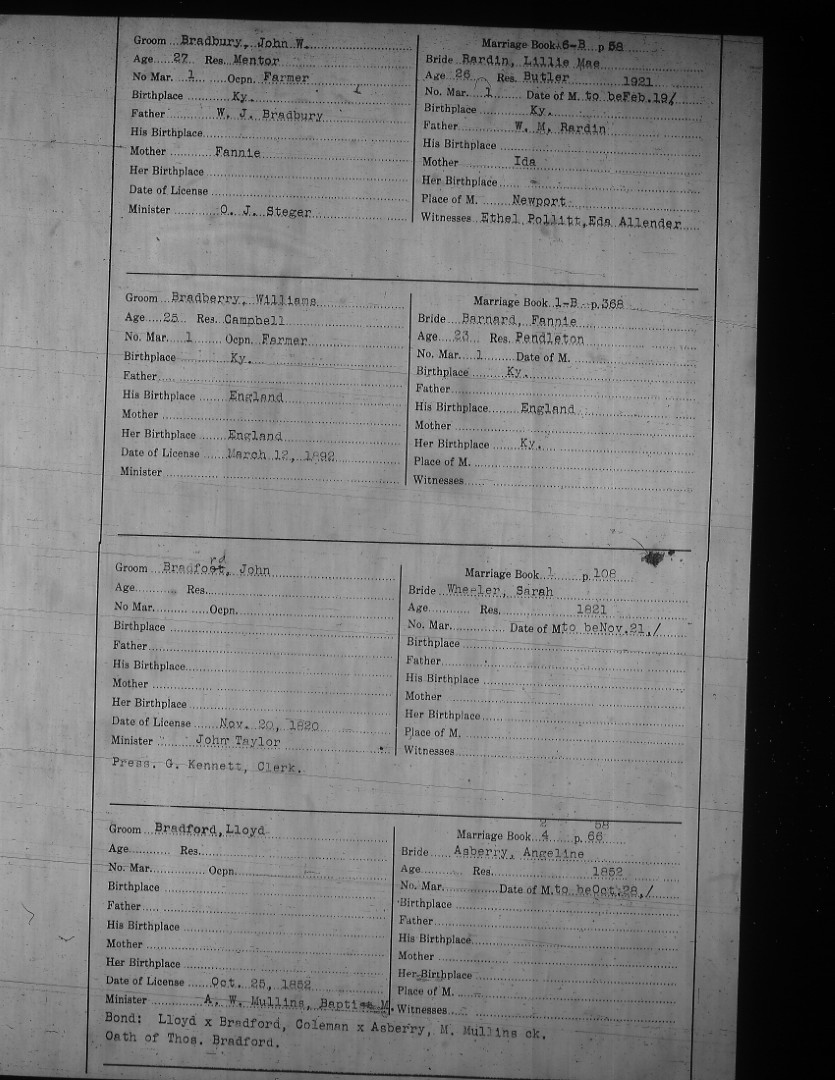 Groom Bradbury, John W.
Age 27 Res. Mentor
No Mar. 1 Ocpn. Farmer
Birthplace Ky.
Father W. J. Bradbury
His Birthplace
Mother Fannie
Her Birthplace
Date of License
Minister O. J. Steger
Marriage Book 6-B p 58
Bride Rardin, Lillie Mae
Age 26 Res. Butler 1921
No. Mar. 1 Date of M. to be Feb.19/
Birthplace Ky.
Father W. M. Rardin
His Birthplace
Mother Ida
Her Birthplace
Place of M. Newport
Witnesses Ethel Pollitt, Eda Allender
Groom Bradberry, Williams
Age 25 Res. Campbell
No. Mar. 1 Ocpn. Farmer
Birthplace Ky.
Father
His Birthplace England
Mother
Her Birthplace England
Date of License March 12, 1892
Minister
Marriage Book 1-B p. 368
Bride Barnard, Fannie
Age 23 Res. Pendleton
No. Mar. 1 Date of M.
Birthplace Ky.
Father
His Birthplace England
Mother
Her Birthplace Ky.
Place of M.
Witnesses
rd
Groom Bradfort, John
Age Res.
No Mar. Ocpn.
Birthplace
Father
His Birthplace
Mother
Her Birthplace
Date of License Nov. 20, 1820
Minister John Taylor
Press. G. Kennett, Clerk.
Marriage Book 1 p. 108
Bride Wheeler, Sarah
Age Res. 1821
No. Mar. Date of M. to be Nov.21,/
Birthplace
Father
His Birthplace
Mother
Her Birthplace
Place of M.
Witnesses
Groom Bradford, Lloyd
Age Res.
No. Mar. Ocpn.
Birthplace
Father
His Birthplace
Mother
Her Birthplace
Date of License Oct. 25, 1852
Minister A. W. Mullins, Baptist M.
2 58
Marriage Book 4 p. 66
Bride Asberry, Angeline
Age Res. 1852
No. Mar. Date of M. to be Oct.28,/
Birthplace
Father
His Birthplace
Mother
Her Birthplace
Place of M.
Witnesses
Bond: Lloyd x Bradford, Coleman x Asberry, M. Mullins ck.
Oath of Thos. Bradford.